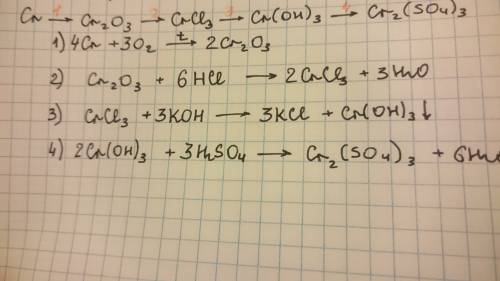 Cr →1 Cr₂O₃ →2 CrCl₃ →3 Cr(OH)₃ →4 Cr₂(SO₄)₃
1) 4Cr + 3O₂ →t 2Cr₂O₃
2) Cr₂O₃ + 6HCl → 2CrCl₃ + 3H₂O
3) CrCl₃ + 3KOH → 3KCl + Cr(OH)₃↓
4) 2Cr(OH)₃ + 3H₂SO₄ → Cr₂(SO₄)₃ + 6H₂O